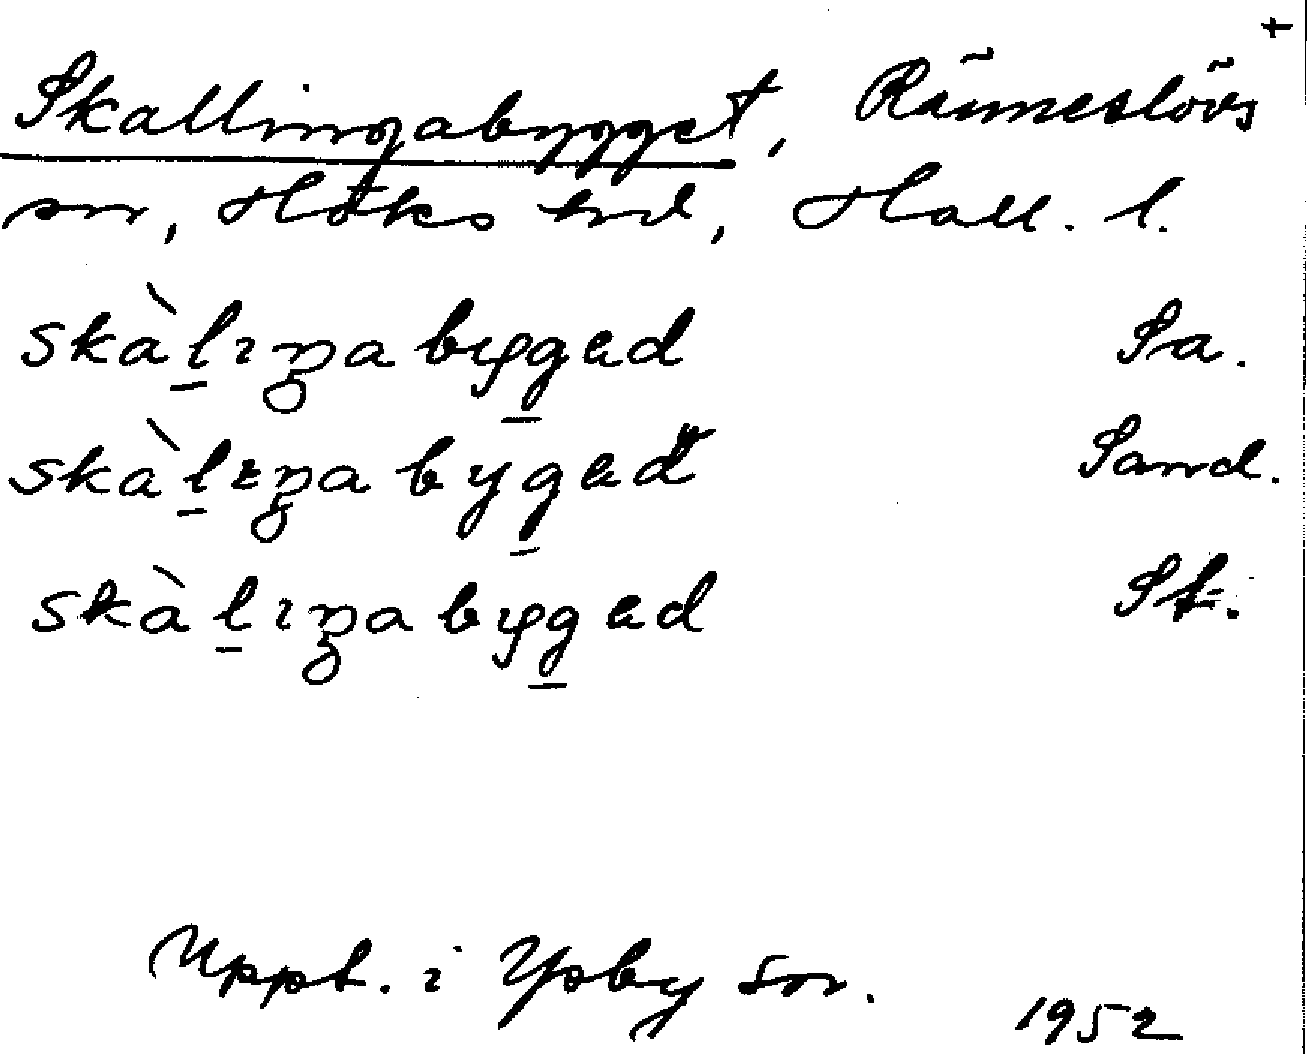 +
Skallingabygget, Ränneslövs
sn, Höks hd, Hall. l.
skàlıŋabygad Sa.
skàlıŋabygad Sand.
skàlıŋabygad St.
Uppt. i Ysby sn.
1952